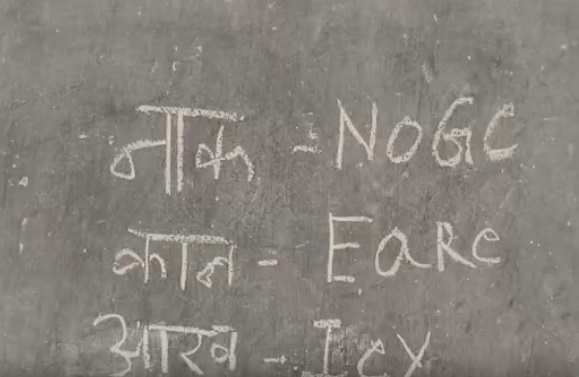 नाक - NOGC
कान - EaRe
आरव - Icy